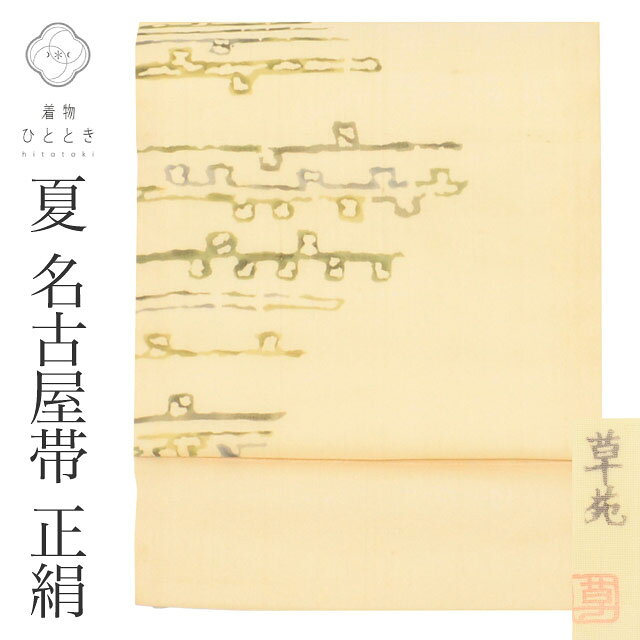 着物
ひととき
hitotoki
夏 名古屋帯 正絹
草苑